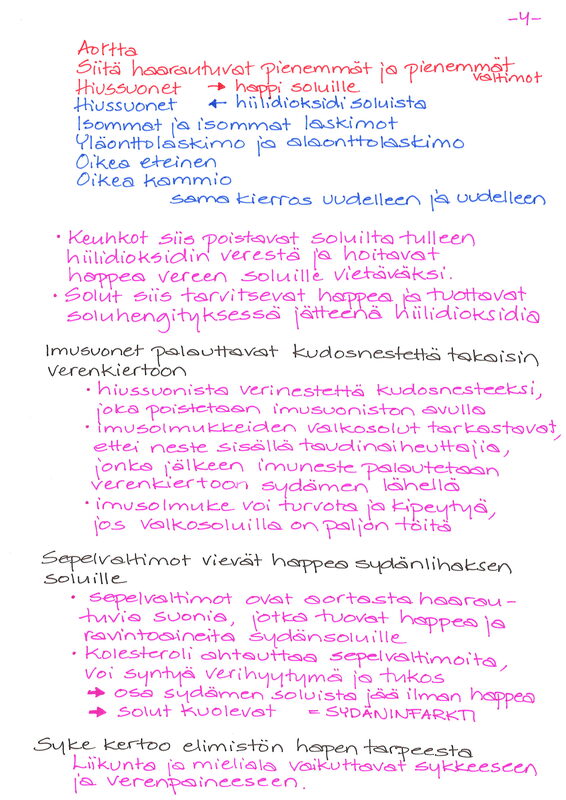 -4-
Aortta
Siitä haarautuvat pienemmät ja pienemmät valtimot
Hiussuonet → happi soluille
Hiussuonet ← hiilidioksidi soluista
Isommat ja isommat laskimot
Yläonttolaskimo ja alaonttolaskimo
Oikea eteinen
Oikea kammio
sama kierros uudelleen ja uudelleen
• Keuhkot siis poistavat soluilta tulleen
hiilidioksidin verestä ja hoitavat
happea vereen soluille vietäväksi.
• Solut siis tarvitsevat happea ja tuottavat
soluhengityksessä jätteenä hiilidioksidia
Imusuonet palauttavat kudosnestettä takaisin
verenkiertoon
• hiussuonista verinestettä kudosnesteeksi,
joka poistetaan imusuoniston avulla
• imusolmukkeiden valkosolut tarkastavat,
ettei neste sisällä taudinaiheuttajia,
jonka jälkeen imuneste palautetaan
verenkiertoon sydämen lähellä
• imusolmuke voi turvota ja kipeytyä,
jos valkosoluilla on paljon töitä
Sepelvaltimot vievät happea sydänlihaksen
soluille
• sepelvaltimot ovat aortasta haarau-
tuvia suonia, jotka tuovat happea ja
ravintoaineita sydänsoluille
• Kolesteroli ahtauttaa sepelvaltimoita,
voi syntyä verihyytymä ja tukos
→ osa sydämen soluista jää ilman happea
→ solut kuolevat = SYDÄNINFARKTI
Syke kertoo elimistön hapen tarpeesta
Liikunta ja mieliala vaikuttavat sykkeeseen
ja verenpaineeseen.